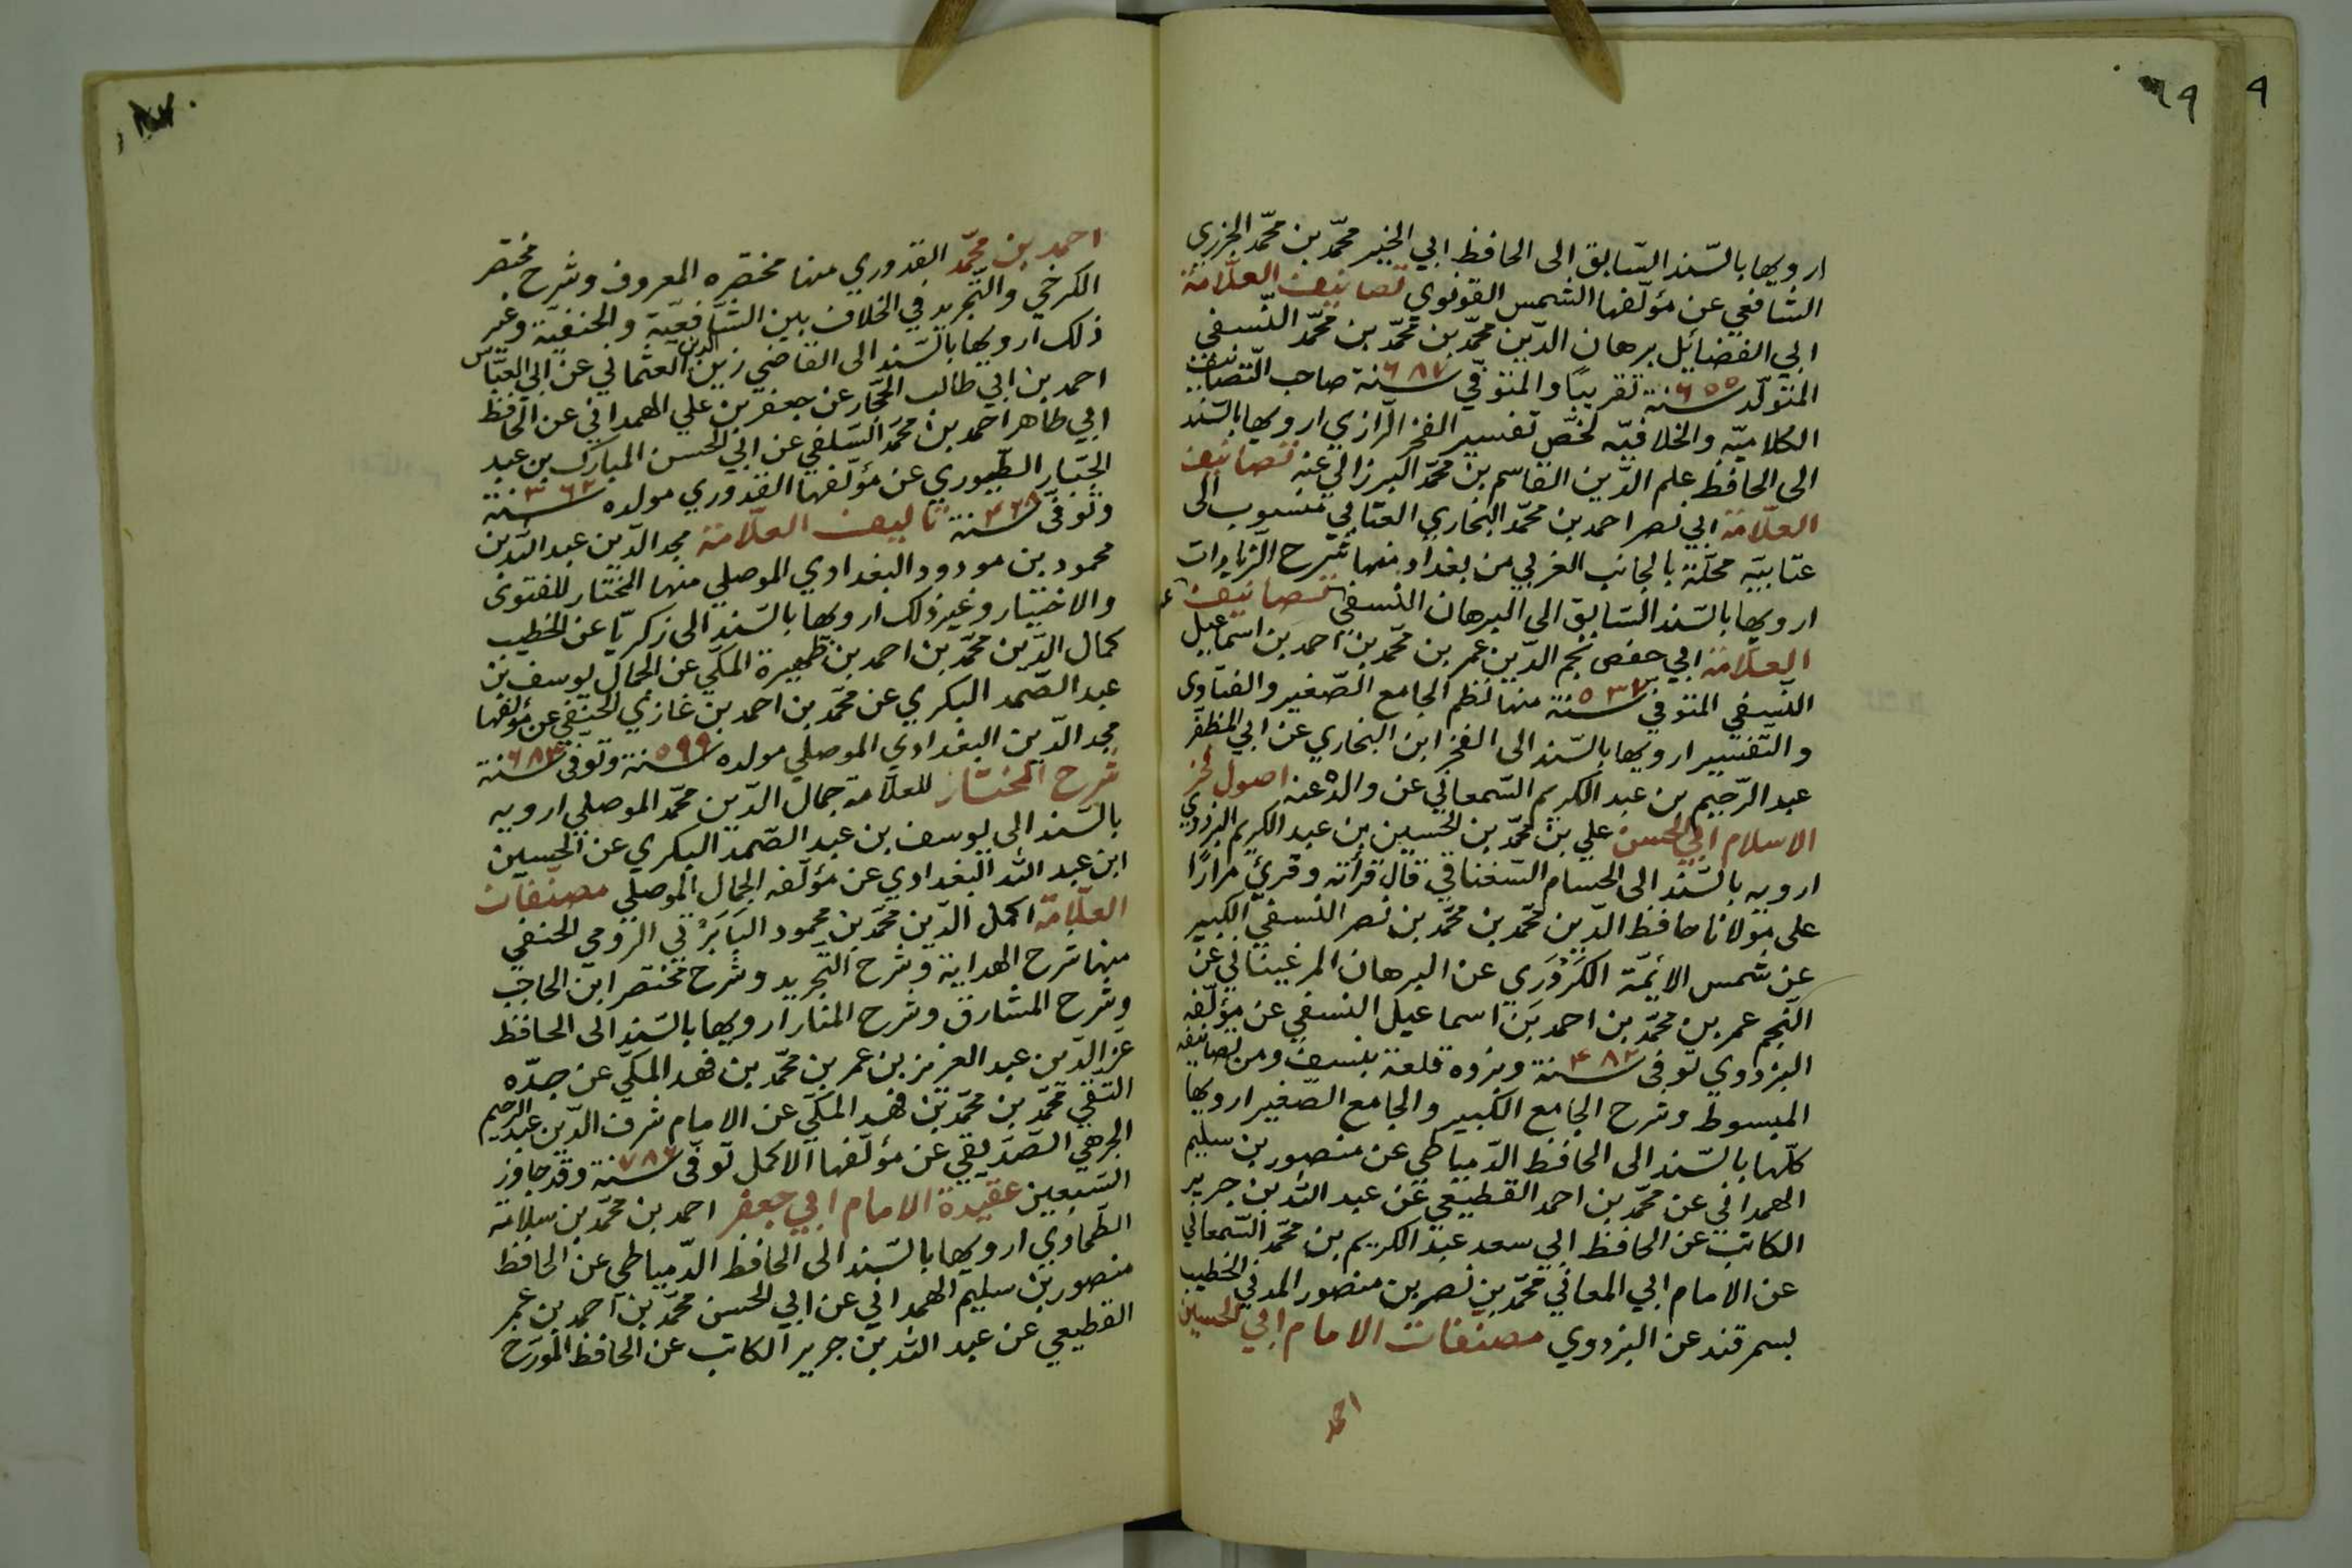 ٦٩
٩
ارويها بالسّند السّابق الى الحافظ ابي الخير محمّد بن محمّد الجزري
الشافعي عن مؤلّفها الشمس القونوي تصانيف العلّامة
ابي الفضائيل برهان الدّين محمّد بن محمّد بن محمّد النّسفي
المتولّد سنة ٦٥٥ تقريبًا والمتوفّي سنة ٦٨٧ صاحب التّصانيف
الكلاميّه والخلافيّه لخّص تفسير الفخر الرّازي ارويها بالسّند
الى الحافظ علم الدّين القاسم بن محمّد البرزالي عنه تصانيف
العلّامة ابي نصر احمد بن محمّد البخاري العتابي منسوب الى
عتابيّه محلّة بالجانب الغربي من بغداد منها شرح الزّيادات
ارويها بالسّند السّابق الى البرهان النّسفي تصانيف
العلّامة ابي حفص نجم الدّين عمر بن محمّد بن احمد بن اسماعيل
النّسفي المتوفي سنة ٥٣٧ منها نظم الجامع الصّغير والفتاوى
والتّفسير ارويها بالسّند الى الفخر ابن البخاري عن ابي المظفّر
عبد الرّحيم بن عبد الكريم السّمعاني عن والده عنه اصول فخر
الاسلام ابي الحسن علي بن محمّد بن الحسين بن عبد الكريم البزدوي
ارويه بالسّند الى الحسام السّغناقي قال قرأته وقرئ مرارًا
على مولانا حافظ الدّين محمّد بن محمّد بن نصر النّسفي الكبير
عن شمس الائمّة الكَرْدَري عن البرهان المرغيناني عن
النّجم عمر بن محمّد بن احمد بن اسماعيل النسفي عن مؤلّفه
البزدوي توفى سنة ٤٨٢ وبزوه قلعة بنسف ومن تصانيفه
المبسوط وشرح الجامع الكبير والجامع الصّغير ارويها
كلّها بالسّند الى الحافظ الدّمياطي عن منصور بن سليم
الهمداني عن محمّد بن احمد القطيعي عن عبد الله بن جرير
الكاتب عن الحافظ ابي سعد عبد الكريم بن محمّد السّمعاني
عن الامام ابي المعالي محمّد بن نصر بن منصور المدني الخطيب
بسمرقند عن البزدوي مصنفات الامام ابي الحسين
احمد
احمد بن محمّد القدوري منها مختصره المعروف وشرح مختصر
الكرخي والتّجريد في الخلاف بين الشّافعيّة والحنفيّة وغير
ذلك ارويها بالسّند الى القاضي زين الدين العثماني عن ابي العبّاس
احمد بن ابي طالب الحّجار عن جعفر بن علي الهمداني عن الحافظ
ابي طاهر احمد بن محمّد السّلفي عن ابي الحسن المبارك بن عبد
الجبّار الطّيوري عن مؤلّفها القدوري مولده سنة ٣٦٢
وتوفّى سنة ٤٢٨ تاليف العلّامة مجد الدّين عبد الله بن
محمود بن مودود البغدادي الموصلي منها المختار للفتوى
والاختيار وغير ذلك ارويها بالسّند الى زكريّا عن الخطيب
كمال الدّين محمّد بن احمد بن ظهيرة المكّي عن الجمال يوسف بن
عبد الصّمد البكري عن محمّد بن احمد بن غازي الحنفي عن مؤلفها
مجد الدّين البغدادي الموصلي مولده سنة ٥٩٩ وتوفى سنة ٦٨٣
شرح المختار للعلّامة جمال الدّين محمّد الموصلي ارويه
بالسّند الى يوسف بن عبد الصّمد البكري عن الحسين
ابن عبد الله البغدادي عن مؤلّفه الجمال الموصلي مصنّفات
العلّامة اكمل الدّين محمّد بن محمود البَابَرْتي الرّومي الحنفي
منها شرح الهداية وشرح التّجريد وشرح مختصر ابن الحاجب
وشرح المشارق وشرح المنار ارويها بالسّند الى الحافظ
عز الدّين عبد العزيز بن عمر بن محمّد بن فهد المكّي عن جدّه
التّقي محمّد بن محمّد بن فهد المكّي عن الامام شرف الدّين عبد الرحيم
الجرهي الصّدّيقي عن مؤلّفها الاكمل توفّى سنة ٧٨٦ وقد جاوز
السّبعين عقيدة الامام ابي جعفر احمد بن محمّد بن سلامة
الطّحاوي ارويها بالسّند الى الحافظ الدّمياطي عن الحافظ
منصور بن سليم الهمداني عن ابي الحسن محمّد بن احمد بن عمر
القطيعي عن عبد الله بن جرير الكاتب عن الحافظ المورخ